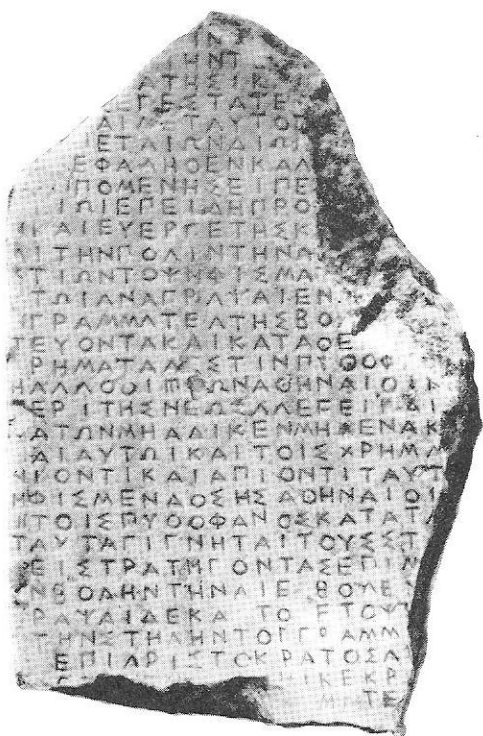 ΙΝ
ΗΝΠ
ΑΤΗΣΙΚΙ
ΕΓΕΣΤΑΤΕ
ΑΙΕΣΤΑΥΤΟΠ
ΕΤΑΙΩΝΔΙΩ
ΕΦΑΛΗΘΕΝΚΑΛ
ΙΠΟΜΕΝΗΣΕΙΠΕ
ΙΩΙΕΠΕΙΔΗΠΡΟ
ΑΙΕΥΕΡΓΕΤΗΣΚ
ΑΙΤΗΝΠΟΛΙΝΤΗΝΑ
ΤΙΩΝΤΟΨΗΦΙΣΜΑ
ΤΩΙΑΝΑΓΡΑΨΑΙΕΝ
ΓΡΑΜΜΑΤΕΑΤΗΣΒΟ
ΤΕΥΟΝΤΑΚΑΙΚΑΤΑΘΕ
ΡΗΜΑΤΑΔΕΣΤΙΝΠΥΘΟΦ
ΗΑΛΛΟΘΙΠΟΩΝΑΘΗΝΑΙΟΙΚ
ΕΡΙΤΗΣΝΕΩΣΑΛΕΓΕΙΓΔΙ
ΑΤΩΝΜΗΑΔΙΚΕΝΜΗΔΕΝΑΚ
ΑΙΑΥΤΩΙΚΑΙΤΟΙΣΧΡΗΜΑ
ΙΟΝΤΙΚΑΙΑΠΙΟΝΤΙΤΑΥΤ
ΗΦΙΣΜΕΝΑΟΣΗΣΑΘΗΝΑΙΟΙ
ΤΟΙΣΠΥΘΟΦΑΝΟΣΚΑΤΑΤΑ
ΤΑΥΤΑΓΙΓΝΗΤΑΙΤΟΥΣΣΤ
ΕΙΣΤΡΑΤΗΓΟΝΤΑΣΕΠΙΝ
ΝΒΟΛΗΝΤΗΝΑΙΕΒΟΥΛΕ
ΡΑΨΑΙΔΕΚΑ ΤΟ ΕΤΟΨ
ΤΗΝΣΤΗΛΗΝΤΟΓΓΡΑΜΜ
ΕΠΙΑΡΙΣΤΟΚΡΑΤΟΣΑ
ΗΙΚΕΚΡ
ΜΜΤΕ